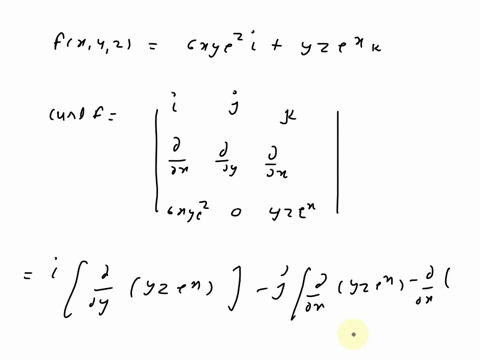 f(x,y,z) = 6xye^z i + yze^x k
curl f =
| i j k |
| ∂/∂x ∂/∂y ∂/∂x |
| 6xye^z 0 yze^x |
= i [ ∂/∂y (yze^x) ] - j [ ∂/∂x (yze^x) - ∂/∂x (